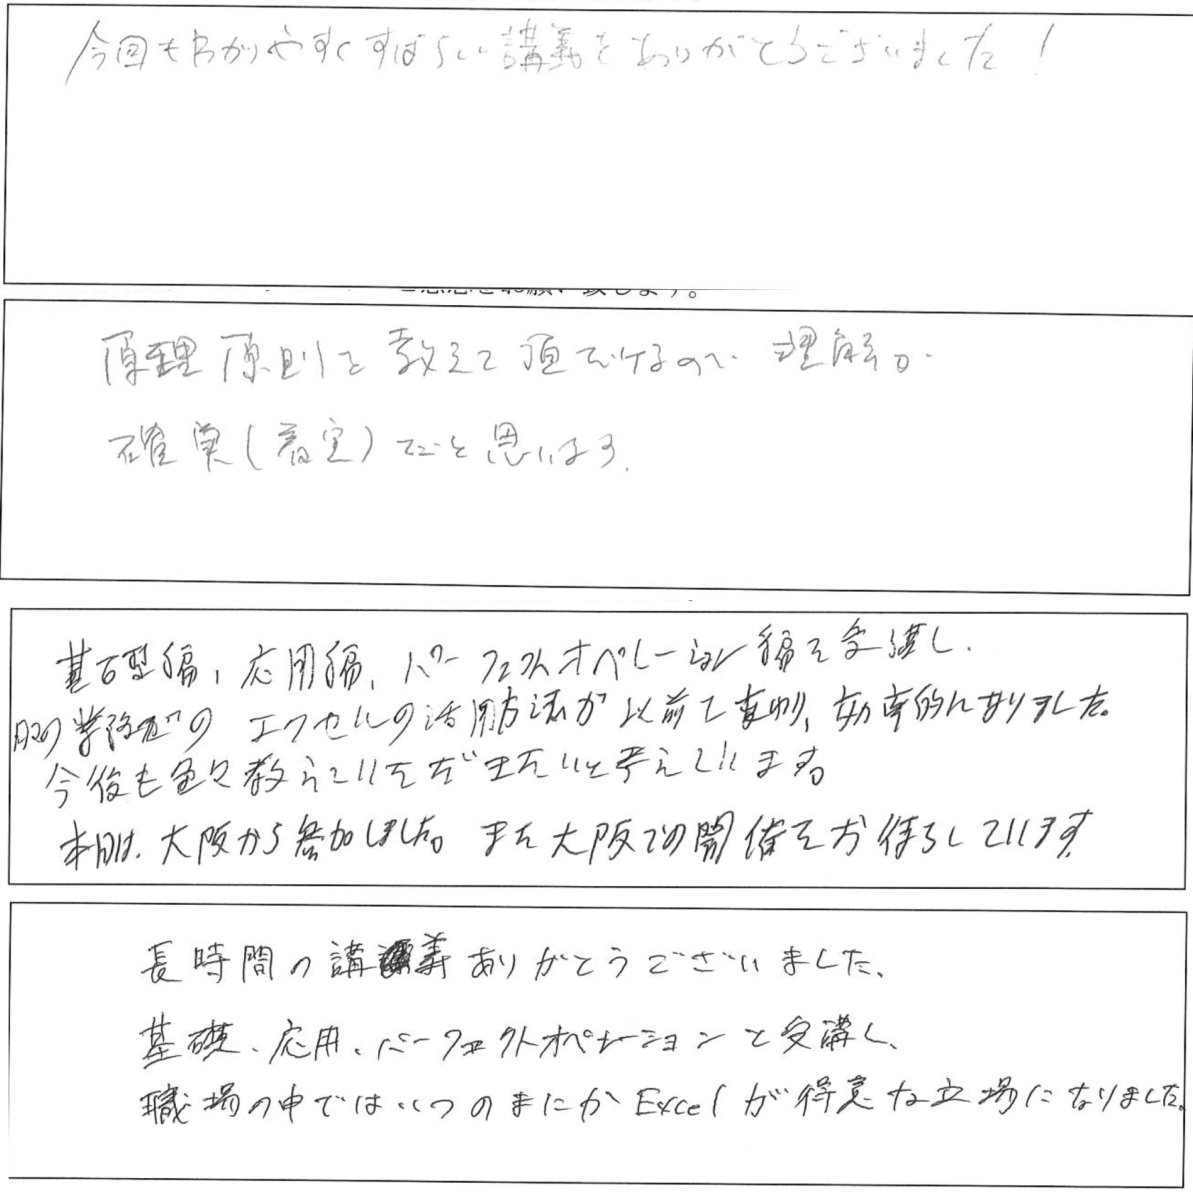 今回もわかりやすくすばらしい講義をありがとうございました！
原理原則を教えて頂だけるので、理解が
確実(着実)だと思います。
基礎編、応用編、パーフェクトオペレーション編を受講し、
日々の業務でのエクセルの活用方法が以前と変わり、効率的になりました。
今後も色々教えていただきたいと考えています。
本日は、大阪から参加しました。また大阪での開催をお待ちしています。
長時間の講義ありがとうございました。
基礎、応用、パーフェクトオペレーションと受講し、
職場の中ではいつのまにかExcelが得意な立場になりました。